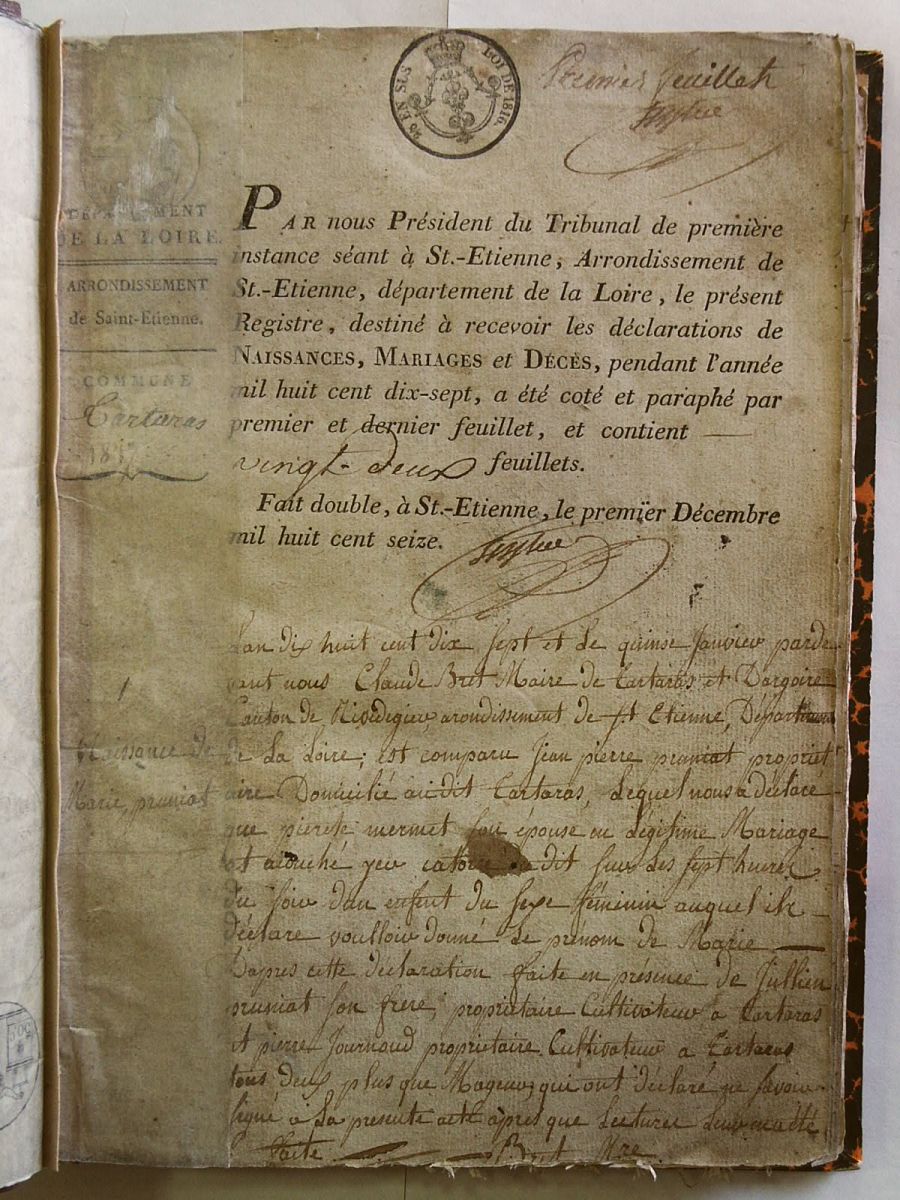 20 EN SUS
LOI DE 1816.
Premier feuillet
DÉPARTEMENT
DE LA LOIRE.
ARRONDISSEMENT
de Saint-Etienne.
COMMUNE
Tartaras
1817
PAR nous Président du Tribunal de première
instance séant à St.-Etienne, Arrondissement de
St.-Etienne, département de la Loire, le présent
Registre, destiné à recevoir les déclarations de
NAISSANCES, MARIAGES et DÉCÈS, pendant l'année
mil huit cent dix-sept, a été coté et paraphé par
premier et dernier feuillet, et contient —
vingt-deux feuillets.
Fait double, à St.-Etienne, le premier Décembre
mil huit cent seize.
1
Naissance de
Marie pruniat
Lan dix huit cent dix sept et le quinse Janvier parde
vant nous Claude Bret Maire de Tartaras et Dargoire
Canton de Rivedegier, arondissement de St Etienne, Département
de La Loire; est comparu Jean pierre pruniat propriet
aire Domicilié audit Tartaras, Lequel nous a déclaré
que pierete mermet son épouse en Légitime Mariage
at acouché yer catorse dit sur Les sept heures
du soir dun enfent du sexe féminin auquel il
déclare voulloir donné Le prénom de Marie —
Dapres cette declaration faite en présence de Jullien
pruniat son frere, propriétaire Cultivateur a Tartaras
et pierre Journoud proprietaire Cultivateur a Tartaras
tous deux plus que Mageur, qui ont déclaré ne savoir
signé a La presente acte âpres que Lecture Leur m'a été
faite. Bret Mre